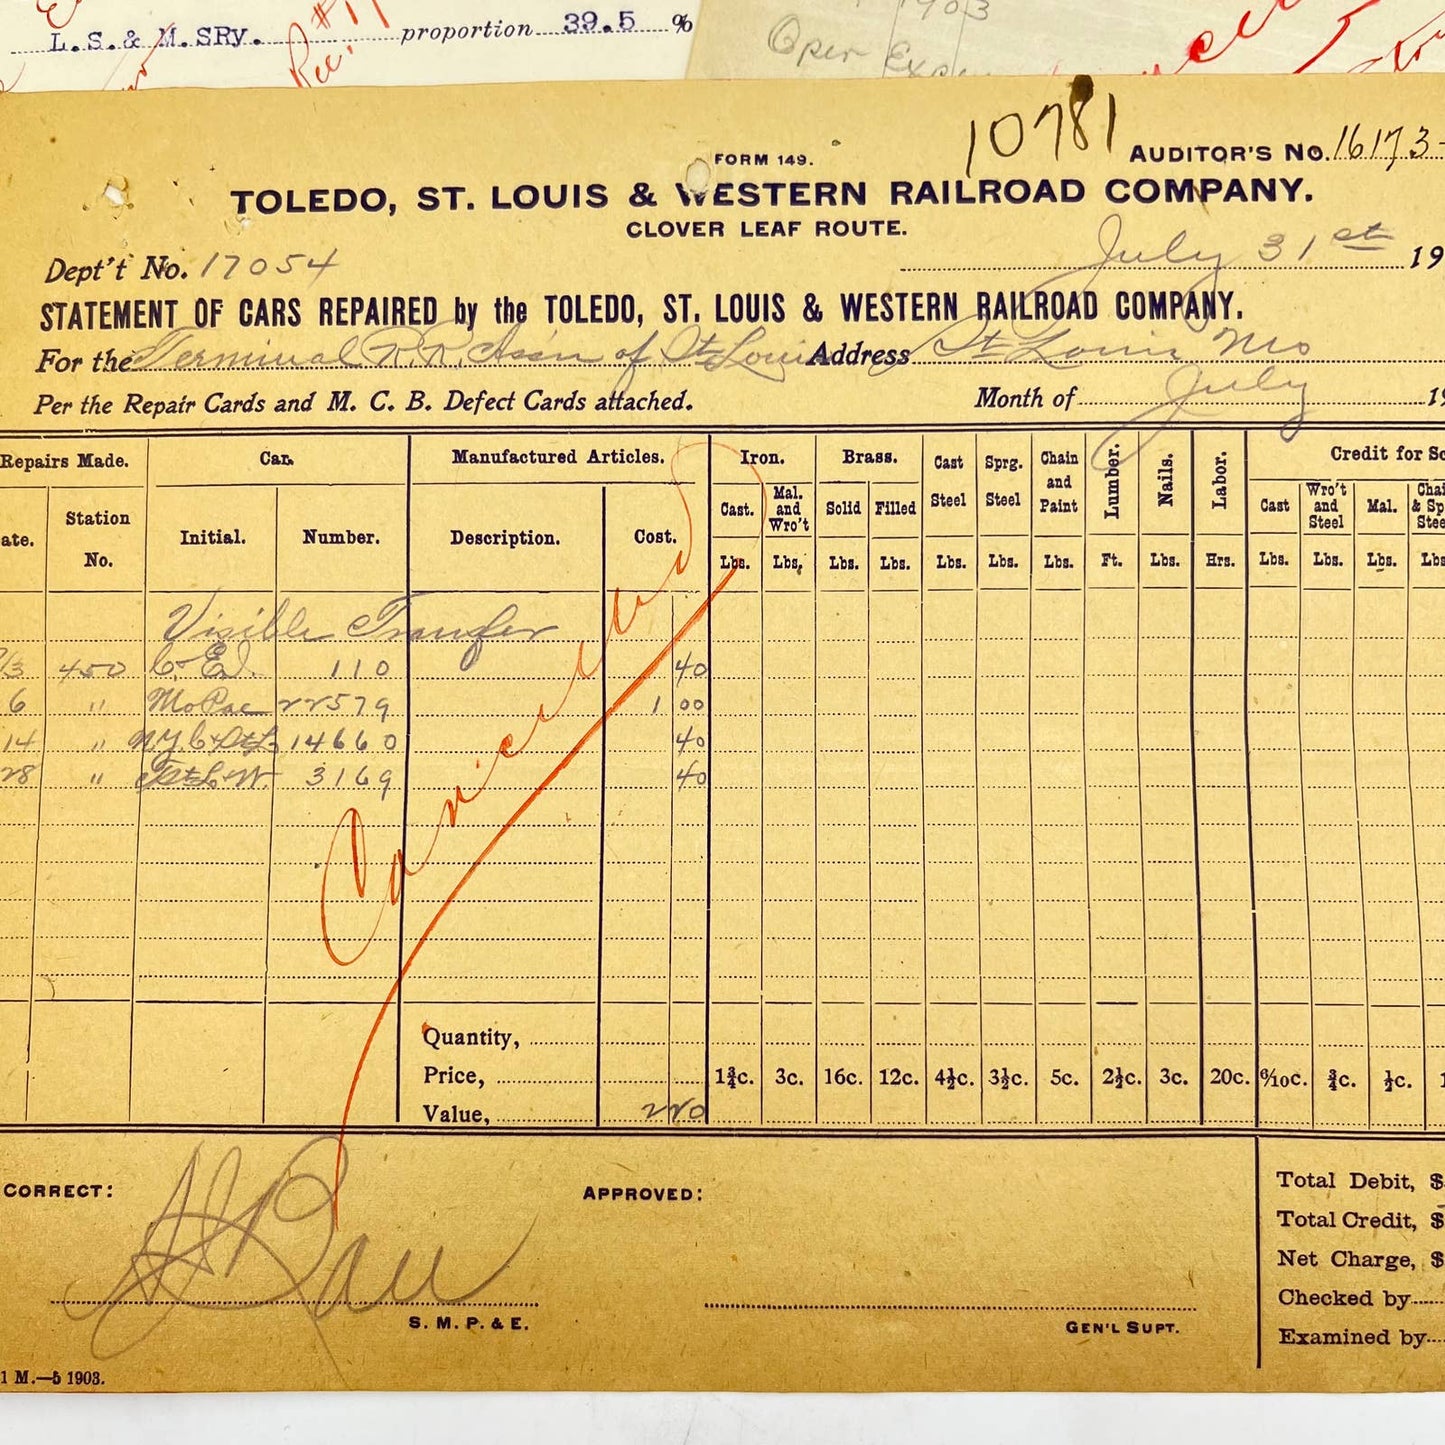 L. S. & M. S Ry. proportion 39.5 %
Rec. #11
1903
Oper Exp
10781
FORM 149.
AUDITOR'S No. 16173
TOLEDO, ST. LOUIS & WESTERN RAILROAD COMPANY.
CLOVER LEAF ROUTE.
Dept't No. 17054
July 31st 19
STATEMENT OF CARS REPAIRED by the TOLEDO, ST. LOUIS & WESTERN RAILROAD COMPANY.
For the Terminal R.R. Assn of St Louis Address St Louis Mo
Per the Repair Cards and M. C. B. Defect Cards attached. Month of July 19
Repairs Made. Car. Manufactured Articles. Iron. Brass. Cast Steel Sprg. Steel Chain and Paint Lumber. Nails. Labor. Credit for Sc
ate. Station No. Initial. Number. Description. Cost. Cast. Mal. and Wro't Solid Filled Cast Wro't and Steel Mal. Chai & Sp Stee
Lbs. Lbs. Lbs. Lbs. Lbs. Lbs. Lbs. Ft. Lbs. Hrs. Lbs. Lbs. Lbs. Lbs
Visible Transfer
/3 450 C. & E.I. 110 40
6 " Mo Pac 22579 1 00
14 " N.Y.C. & St L 14660 40
28 " T St L & W. 3169 40
Cancelled
Quantity,
Price, 1¾c. 3c. 16c. 12c. 4½c. 3½c. 5c. 2½c. 3c. 20c. 6/10c. ¾c. ½c. 1
Value, 2 20
CORRECT: APPROVED:
S. M. P. & E. GEN'L SUPT.
Total Debit, $
Total Credit, $
Net Charge, $
Checked by
Examined by
1 M.—5 1903.